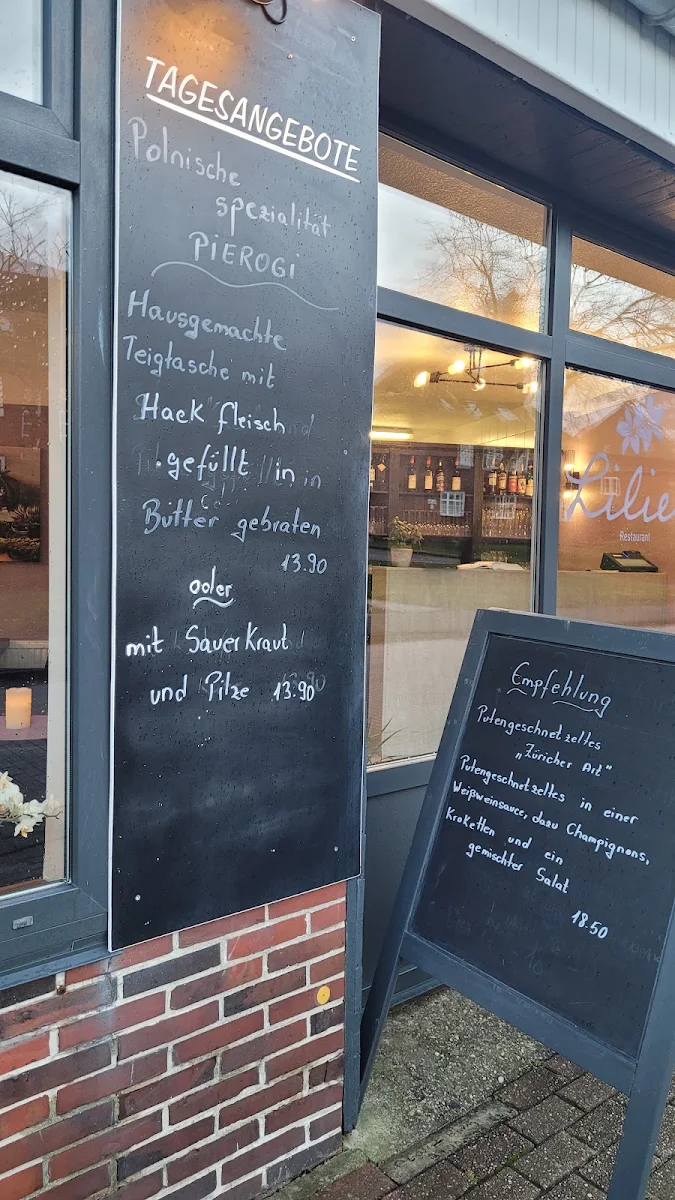 TAGESANGEBOTE
Polnische
spezialität
PiEROGi
Hausgemachte
Teigtasche mit
Hack fleisch
gefüllt in
Butter gebraten
13.90
oder
mit Sauerkraut
und Pilze 13.90
Lilie
Restaurant
Empfehlung
Putengeschnetzeltes
„Züricher Art"
Putengeschnetzeltes in einer
Weißweinsauce, dazu Champignons,
Kroketten und ein
gemischter Salat
18.50